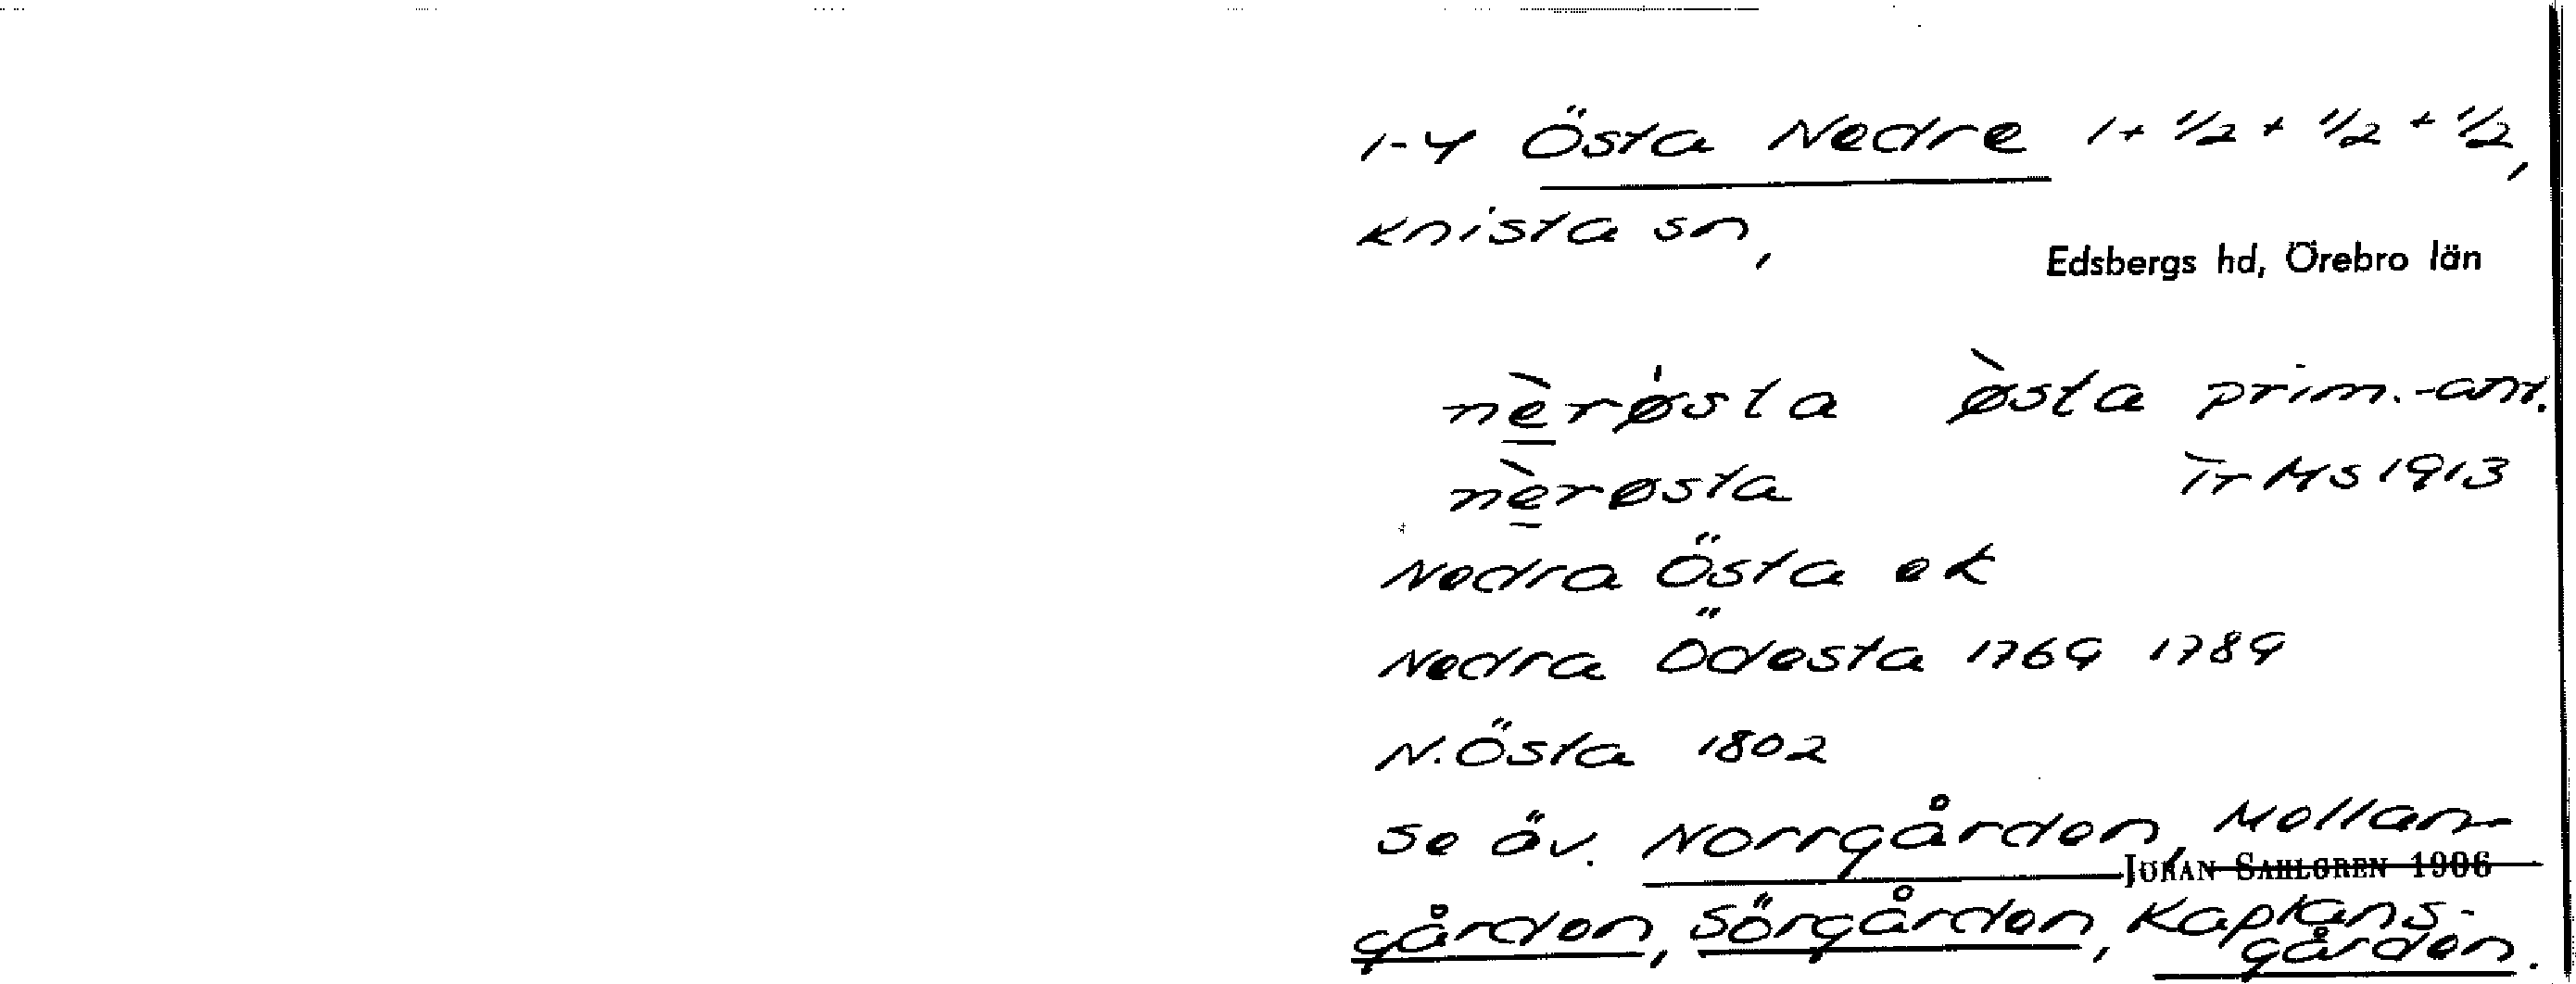 1-4 Östa Nedre 1+ 1/2 + 1/2 + 1/2,
Knista sn,
Edsbergs hd, Örebro län
nèrø̍sta ø̀sta prim.-ant.
nèrøsta Ir MS 1913
Nedra Östa ek
Nedra Ödesta 1769 1789
N. Östa 1802
se äv. Norrgården, Mellan-
JÖRAN SAHLGREN 1906
gården, Sörgården, Kaplans-
gården.